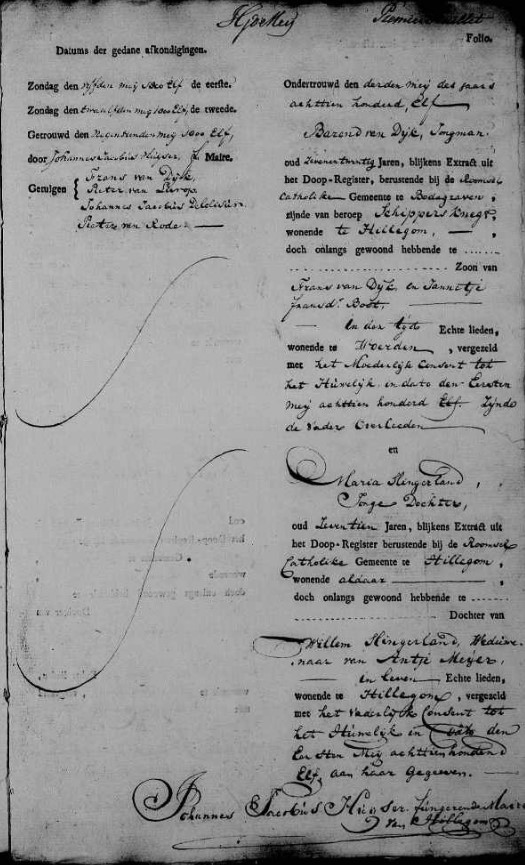 Folio.
Datums der gedane afkondigingen.
Zondag den vyfden mey 1800 Elf de eerste.
Zondag den twaalfden mey 1800 Elf, de tweede.
Getrouwd den Negentienden mey 1800 Elf,
door Johannes Jacobus Huyser, f. Maire.
Getuigen { Frans van Dÿk,
Pieter van
Johannes Jacobus
Pieter van Roden
Ondertrouwd den derden Meÿ des jaars
achttien honderd, Elf
Barend van Dÿk, Jongman.
oud Zevenentwintig Jaren, blijkens Extract uit
het Doop-Register, berustende bij de Roomsch
Catholike Gemeente te Bodegraven,
zijnde van beroep Schippers Knegt,
wonende te Hillegom,
doch onlangs gewoond hebbende te
Zoon van
Frans van Dÿk, en Jannetje
Fransd. Boot,
In der tyd Echte lieden,
wonende te Woerden, vergezeld
met het Moederlijk Consent tot
het Hüwelijk in dato den Eersten
Meÿ achttien honderd Elf. Zijnde
de Vader Overleeden
en
Maria Slingerland,
Jonge Dochter,
oud Zeventien Jaren, blijkens Extract uit
het Doop-Register berustende bij de Roomsch
Catholike Gemeente te Hillegom,
wonende aldaar,
doch onlangs gewoond hebbende te
Dochter van
Willem Slingerland, Weduwe-
naar van Antje Meÿer,
in leven Echte lieden,
wonende te Hillegom, vergezeld
met het Vaderlijk Consent tot
het Hüwelijk in dato den
Eersten Meÿ achttienhonderd
Elf, aan haar Gegeeven.
Johannes Jacobüs Huyser. füngerende Maire
van Hillegom